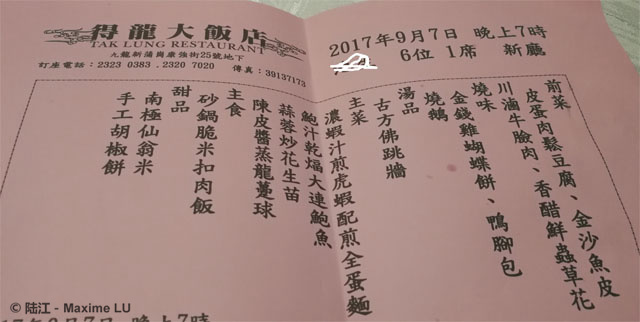 得龍大飯店
TAK LUNG RESTAURANT
九龍新蒲崗康強街25號地下
訂座電話：2323 0383 . 2320 7020 傳真：39137173
2017年9月7日 晚上7時
6位 1席 新廳
前菜
皮蛋肉鬆豆腐、金沙魚皮
川滷牛臉肉、香醋鮮蟲草花
燒味
金錢雞蝴蝶餅、鴨腳包
燒鵝
湯品
古方佛跳牆
主菜
濃蝦汁煎虎蝦配煎全蛋麵
鮑汁乾煏大連鮑魚
蒜蓉炒花生苗
陳皮醬蒸龍躉球
主食
砂鍋脆米扣肉飯
甜品
南極仙翁米
手工胡椒餅
© 陆江 - Maxime LU
17年9月7日 晚上7時